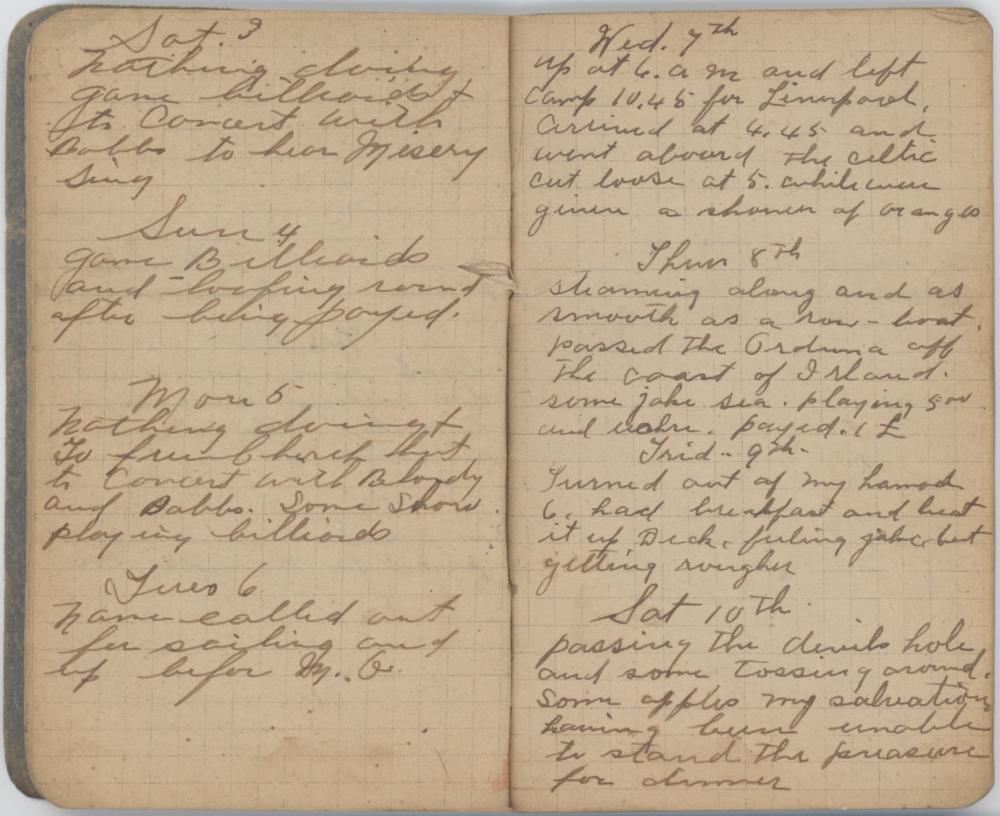 Sat. 3
Nothing doing
game billiards +
to Concert with
Babbs to hear Misery
Sing
Sun 4
game Billiards
and loofing round
after being payed.
Mon 5
Nothing doing +
To
to Concert with Bloody
and Babbs. Some Show.
playing billiards
Tues 6
Name called out
for sailing and
up befor M. O.
Wed. 7th
up at 6. a m and left
Camp 10.45 for Liverpool.
Arrived at 4.45 and
went abourd the celtic
cut loose at 5. while were
given a shower of oranges
Thur 8th
steaming along and as
smooth as a row-boat.
passed the Orduna off
the coast of Irland.
some jake sea. playing 500
and uchre. payed. 1 £
Frid.. 9th.
Turned out of my hamock
6. had breakfast and beat
it up Deck. feeling jake, but
getting rougher
Sat 10th.
passing the devils hole
and some tossing around.
Some apples my salvation
having been unable
to stand the preasure
for dinner